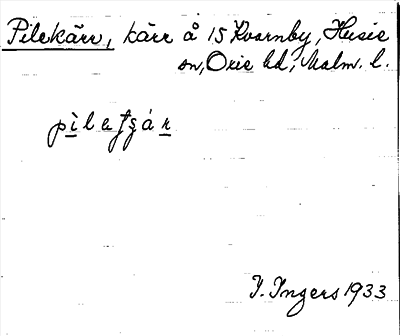 Pilekärr, kärr å 15 Kvarnby, Husie
sn, Oxie hd, Malm. l.
pìleʈʂár
I. Ingers 1933